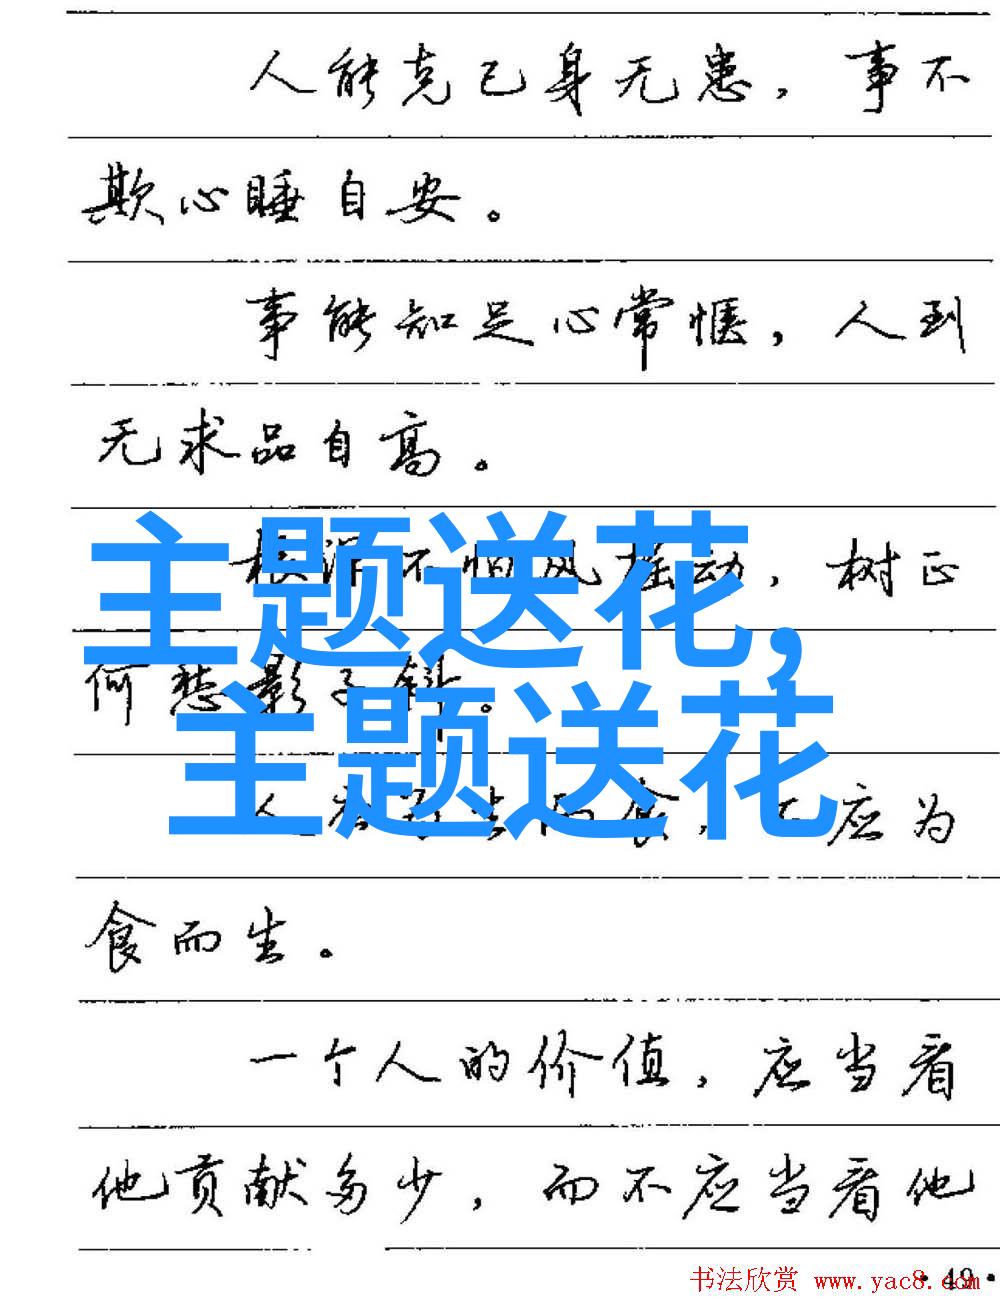 人能克己身无患，事不
欺心睡自安。
事能知足心常惬，人到
无求品自高。
根深不怕风摇动，树正
何愁影子斜。
主题送花，
主题送花
人为而食，不应为
食而生。
一个人的价值，应当看
他贡献多少，而不应当看他
书法欣赏 www.yac8.com
·49·